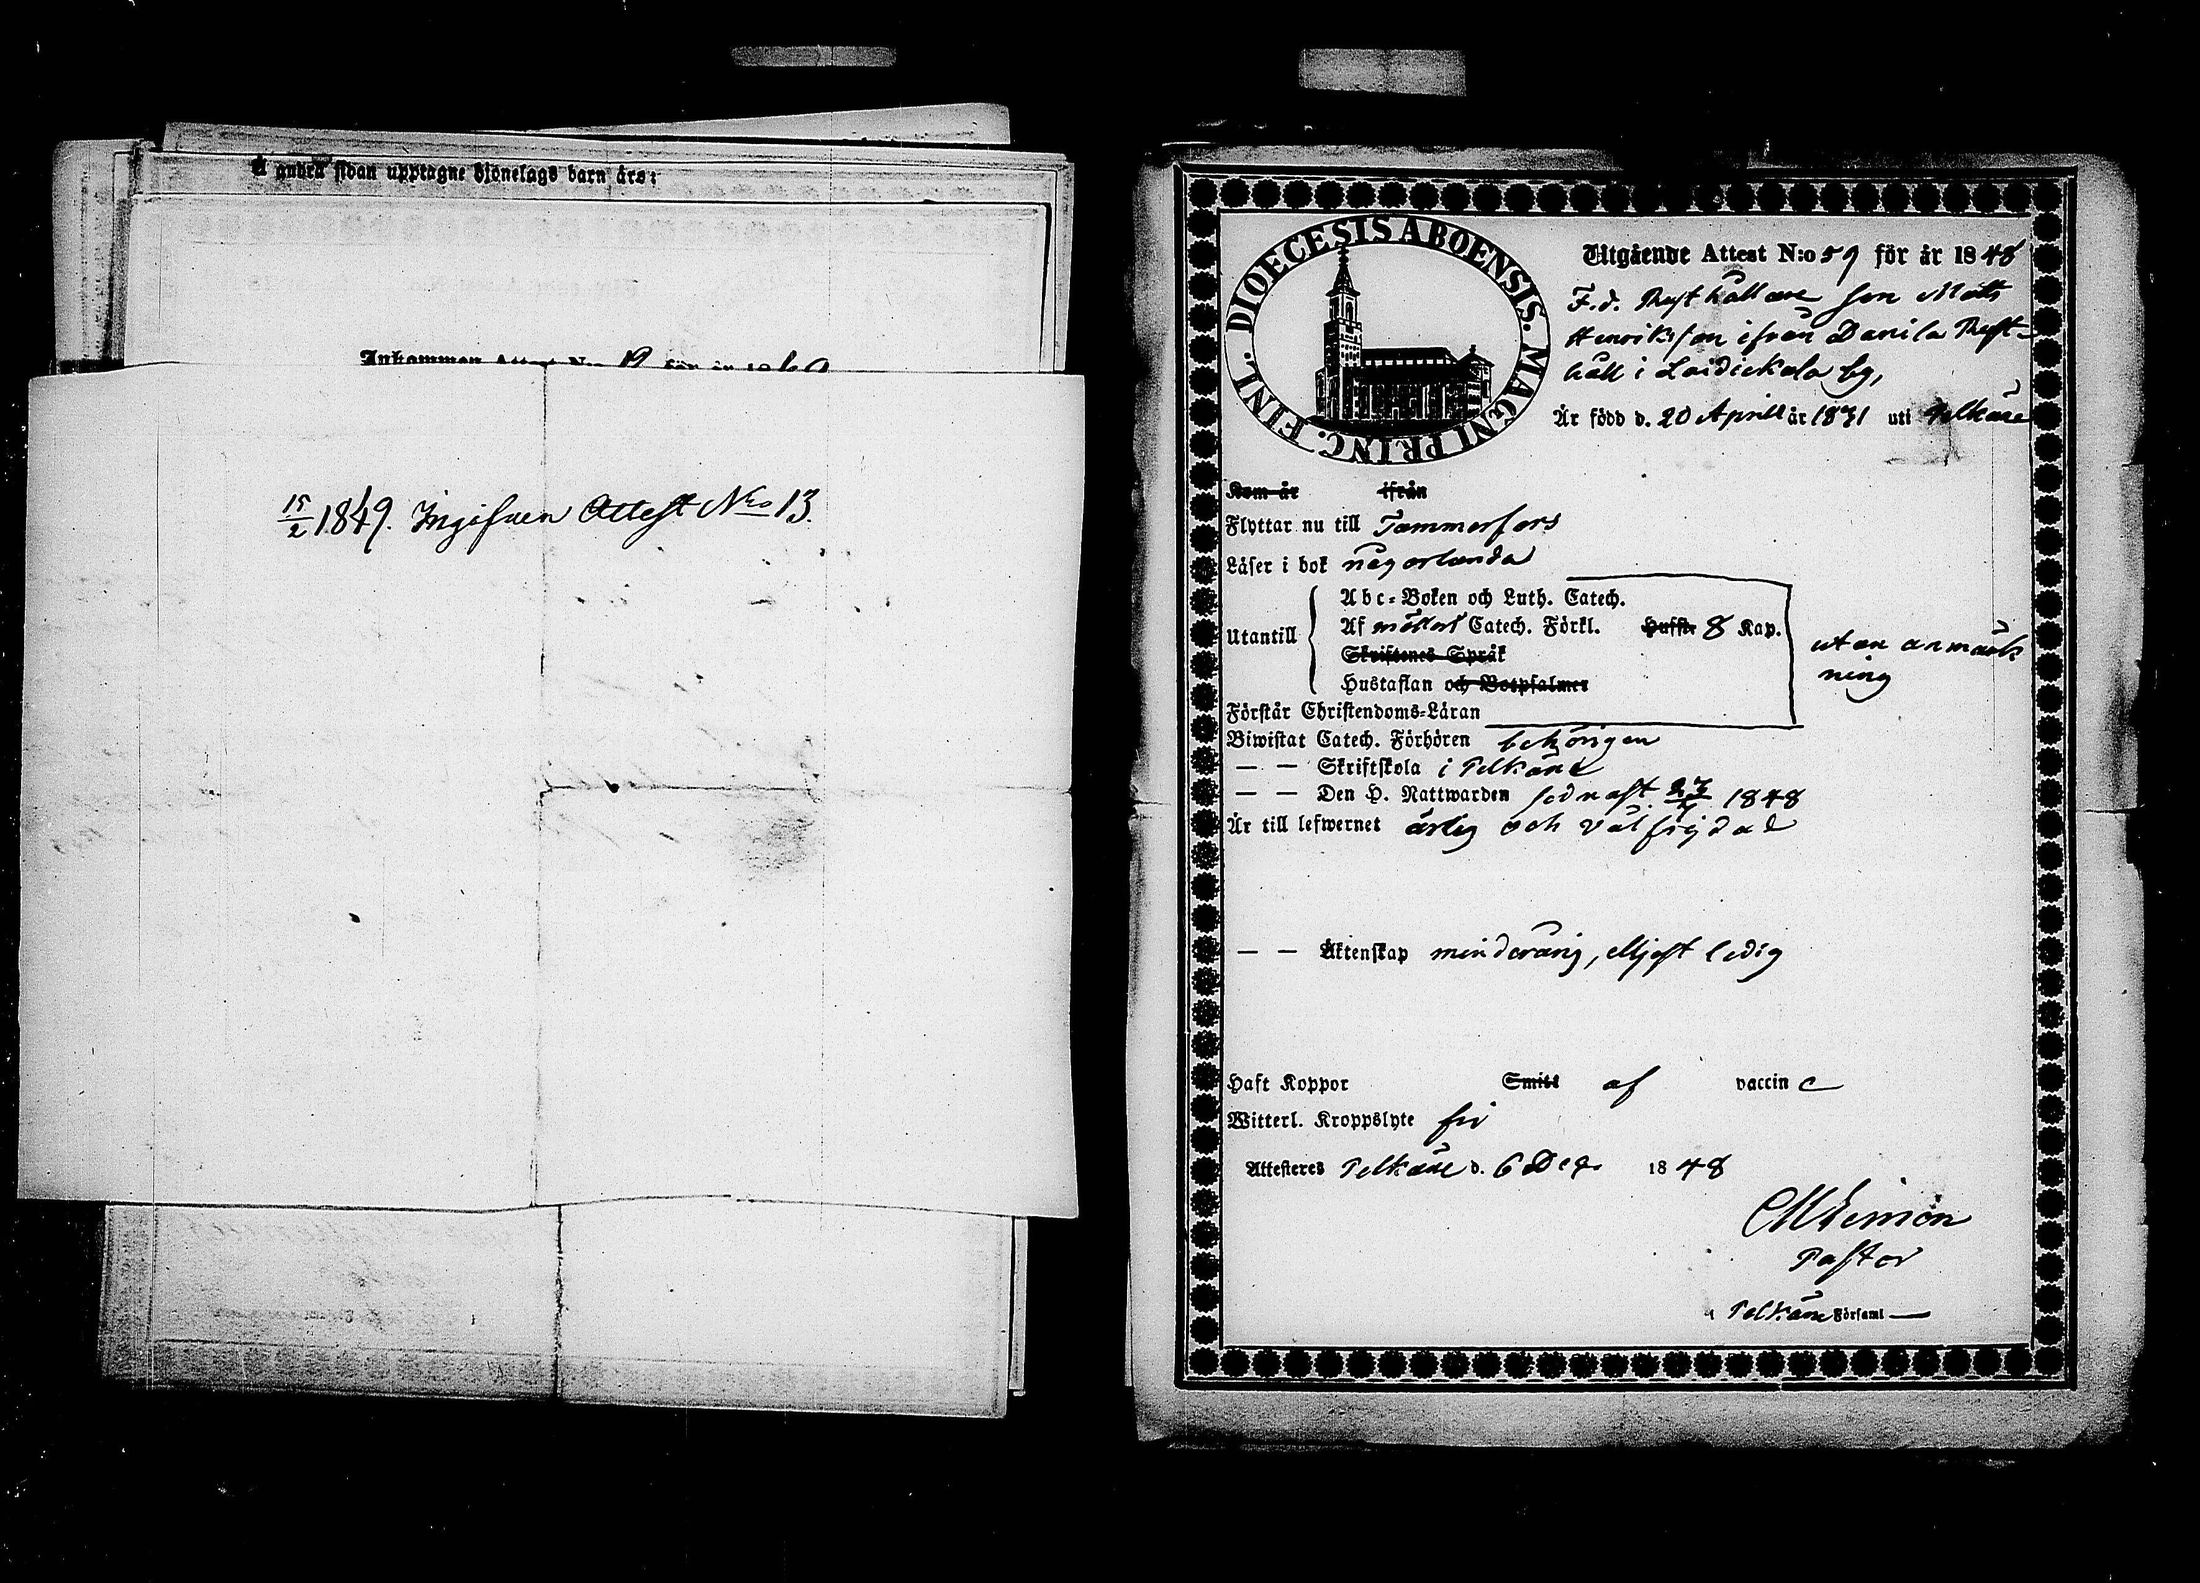 å andra sidan upptagne äjonelags barn äro:
Inkommen Attest N:o 12 för år 1849
15/2 1849. Ingifven Attest N:o 13.
DIOECESIS ABOENSIS. MAGNI PRINC. FINL.
Utgående Attest N:o 59 för år 1848
F.d. Rusthållare son Matts
Henriksson ifrån Danila Rust-
håll i Laidickala by,
Är född d. 20 Aprill år 1831 uti Pelkäne
Kom år ifrån
Flyttar nu till Tammerfors
Läser i bok någorlunda
Utantill
Abc-Boken och Luth. Catech.
Af Catech. Förkl. Hufstr 8 Kap.
Skriftenes Språk
Hustaflan och Botpsalmer
utan anmärk
ning
Förstår Christendoms-Läran
Biwistat Catech. Förhören behörigen
— — Skriftskola i Pelkäne
— — Den H. Nattwarden sednast 23/7 1848
Är till lefwernet ärlig och välfrejdad
— — Äktenskap minderårig, ledig
Haft Koppor Smitt af vaccin e
Witterl. Kroppslyte fri
Attesteres Pelkäne d. 6 Dec. 1848
Pastor
i Pelkäne Församl